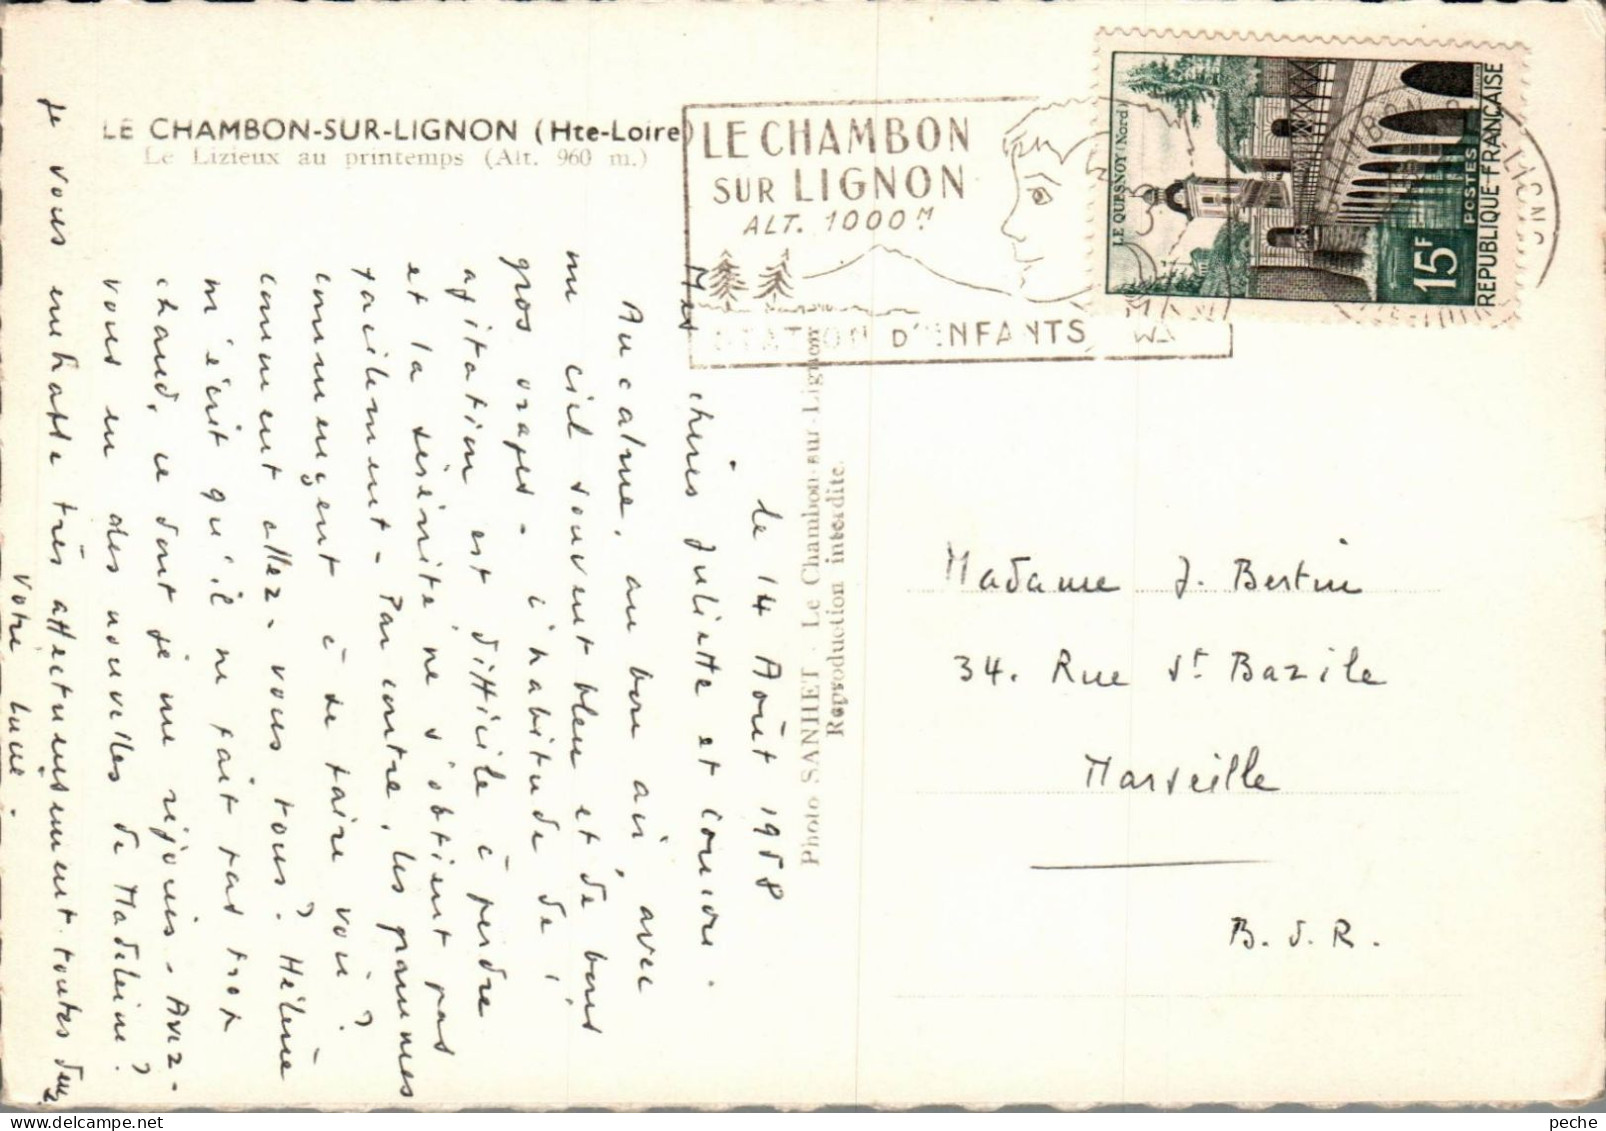 LE CHAMBON-SUR-LIGNON (Hte-Loire)
Le Lizieux au printemps (Alt. 960 m.)
LE CHAMBON
SUR LIGNON
ALT. 1000 M
STATION D'ENFANTS
LE QUESNOY (Nord)
15F
POSTES
REPUBLIQUE FRANÇAISE
Photo SANHET - Le Chambon-sur-Lignon
Reproduction interdite.
le 14 Août 1958
Mes chères Juliette et Loulou.
Au calme, au bon air, avec
un ciel souvent bleu et de bons
gros orages - l'habitude de l'
agitation est difficile à perdre
et la sérénité ne s'obtient pas
facilement - Par contre, les gammes
commencent à se faire voir ?
comment allez-vous tous ? Hélène
m'écrit qu'il ne fait pas trop
chaud, ce dont je me réjouis - Avez-
vous eu des nouvelles de Madeleine ?
Je vous embrasse très affectueusement toutes deux
Votre Lucie.
Madame J. Bertin
34. Rue St Bazile
Marseille
B. d. R.
peche